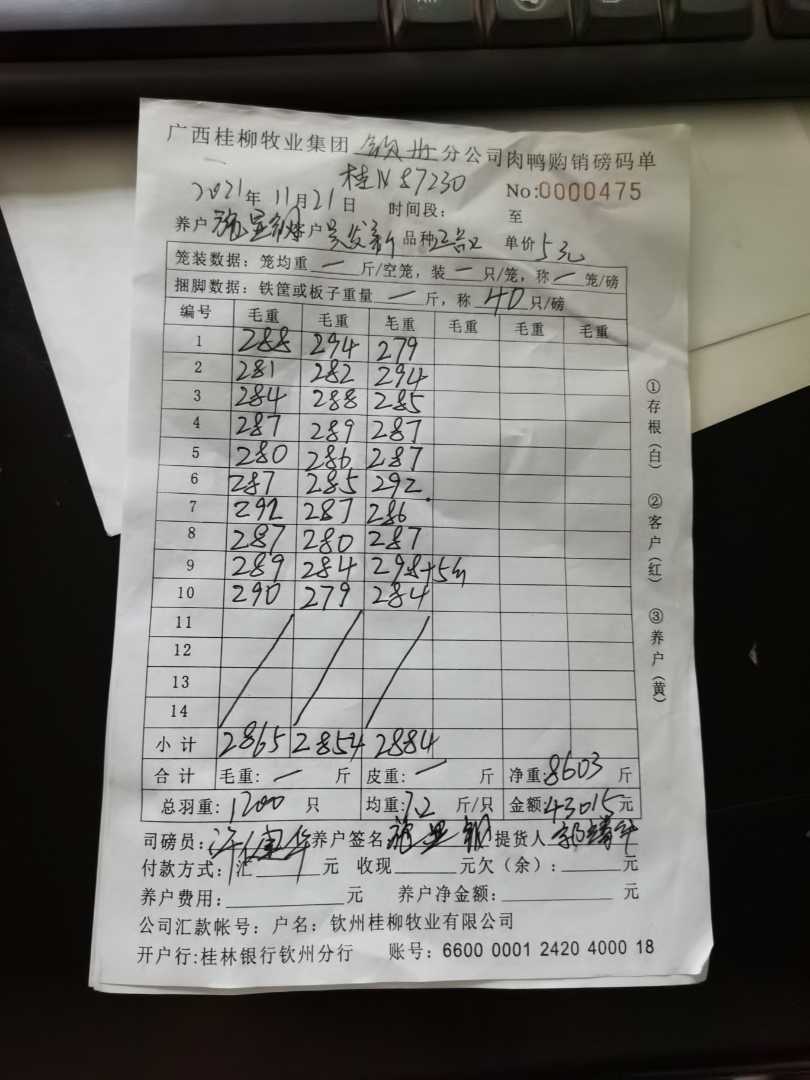 广西桂柳牧业集团 钦州 分公司肉鸭购销磅码单
桂N 87230
No:0000475
2021年 11月21日 时间段: 至
养户 客户 吴发新 品种 单价 5元
笼装数据:笼均重 一 斤/空笼,装 一 只/笼,称 一 笼/磅
捆脚数据:铁筐或板子重量 一 斤,称 40 只/磅
编号 毛重 毛重 毛重 毛重 毛重 毛重
1 288 294 279
2 281 282 294
3 284 288 285
4 287 289 287
5 280 286 287
6 287 285 292
7 292 287 286
8 287 280 287
9 289 284 298+5
10 290 279 284
11
12
13
14
小计 2865 2854 2884
合计 毛重: 一 斤 皮重: 一 斤 净重:8603 斤
总羽重: 1200 只 均重:7.2 斤/只 金额:43015元
司磅员: 养户签名 提货人
付款方式:汇 元 收现 元欠(余): 元
养户费用: 元 养户净金额: 元
公司汇款帐号:户名:钦州桂柳牧业有限公司
开户行:桂林银行钦州分行 账号:6600 0001 2420 4000 18
①存根(白) ②客户(红) ③养户(黄)